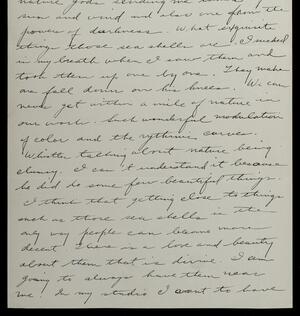 nature gods sending me
sun and wind and also one from the
powers of darkness. What exquisite
things those sea shells are. I sucked
in my breath when I saw them and
took them up one by one. They make
one fall down on his knees. We can
never get within a mile of nature in
our work. Such wonderful modulation
of color and the rythmic curves.
Whistler talking about nature being
clumsy. I can't understand it because
he did do some few beautiful things.
I think that getting close to things
such as those sea shells is the
only way people can become more
decent. There is a love and beauty
about them that is divine. I am
going to always have them near
me. In my studio I want to have